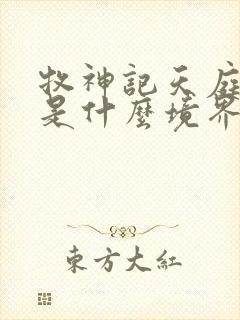 牧神記天庭
是什麼境界
東方大紅